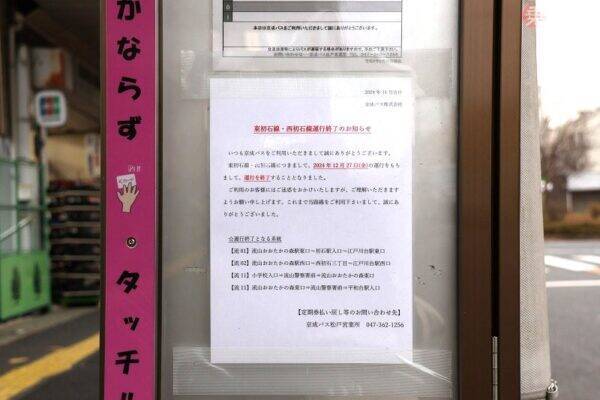 かならず
タッチ
本日は京成バスをご利用いただきまして誠にありがとうございます。
2024年11月吉日
京成バス株式会社
東初石線・西初石線運行終了のお知らせ
いつも京成バスをご利用いただきまして誠にありがとうございます。
東初石線・西初石線につきまして、2024年12月27日(金)の運行をもち
まして、運行を終了することとなりました。
ご利用のお客様にはご迷惑をおかけいたしますが、ご理解いただきます
ようお願い申し上げます。これまで当路線をご利用下さいまして、誠にあ
りがとうございました。
運行終了となる系統
【流01】流山おおたかの森駅東口～初石駅入口～江戸川台駅東口
【流02】流山おおたかの森駅西口～西初石三丁目～江戸川台駅西口
【流11】小学校入口⇒流山警察署前⇒流山おおたかの森東口
【流13】流山おおたかの森東口⇒流山警察署前⇒平和台駅入口
【定期券払い戻し等のお問い合わせ先】
京成バス松戸営業所 047-362-1256